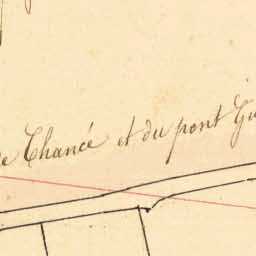 de Chancé et du pont Gu